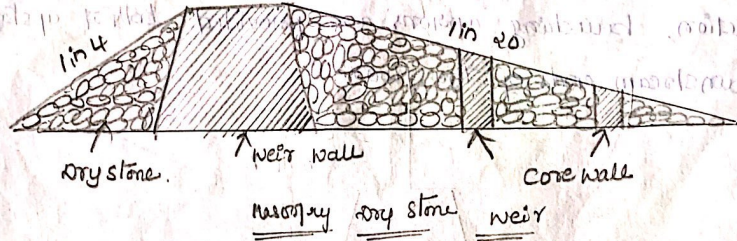 1 in 4
1 in 20
Dry stone.
weir wall
Core wall
Masonry Dry stone weir